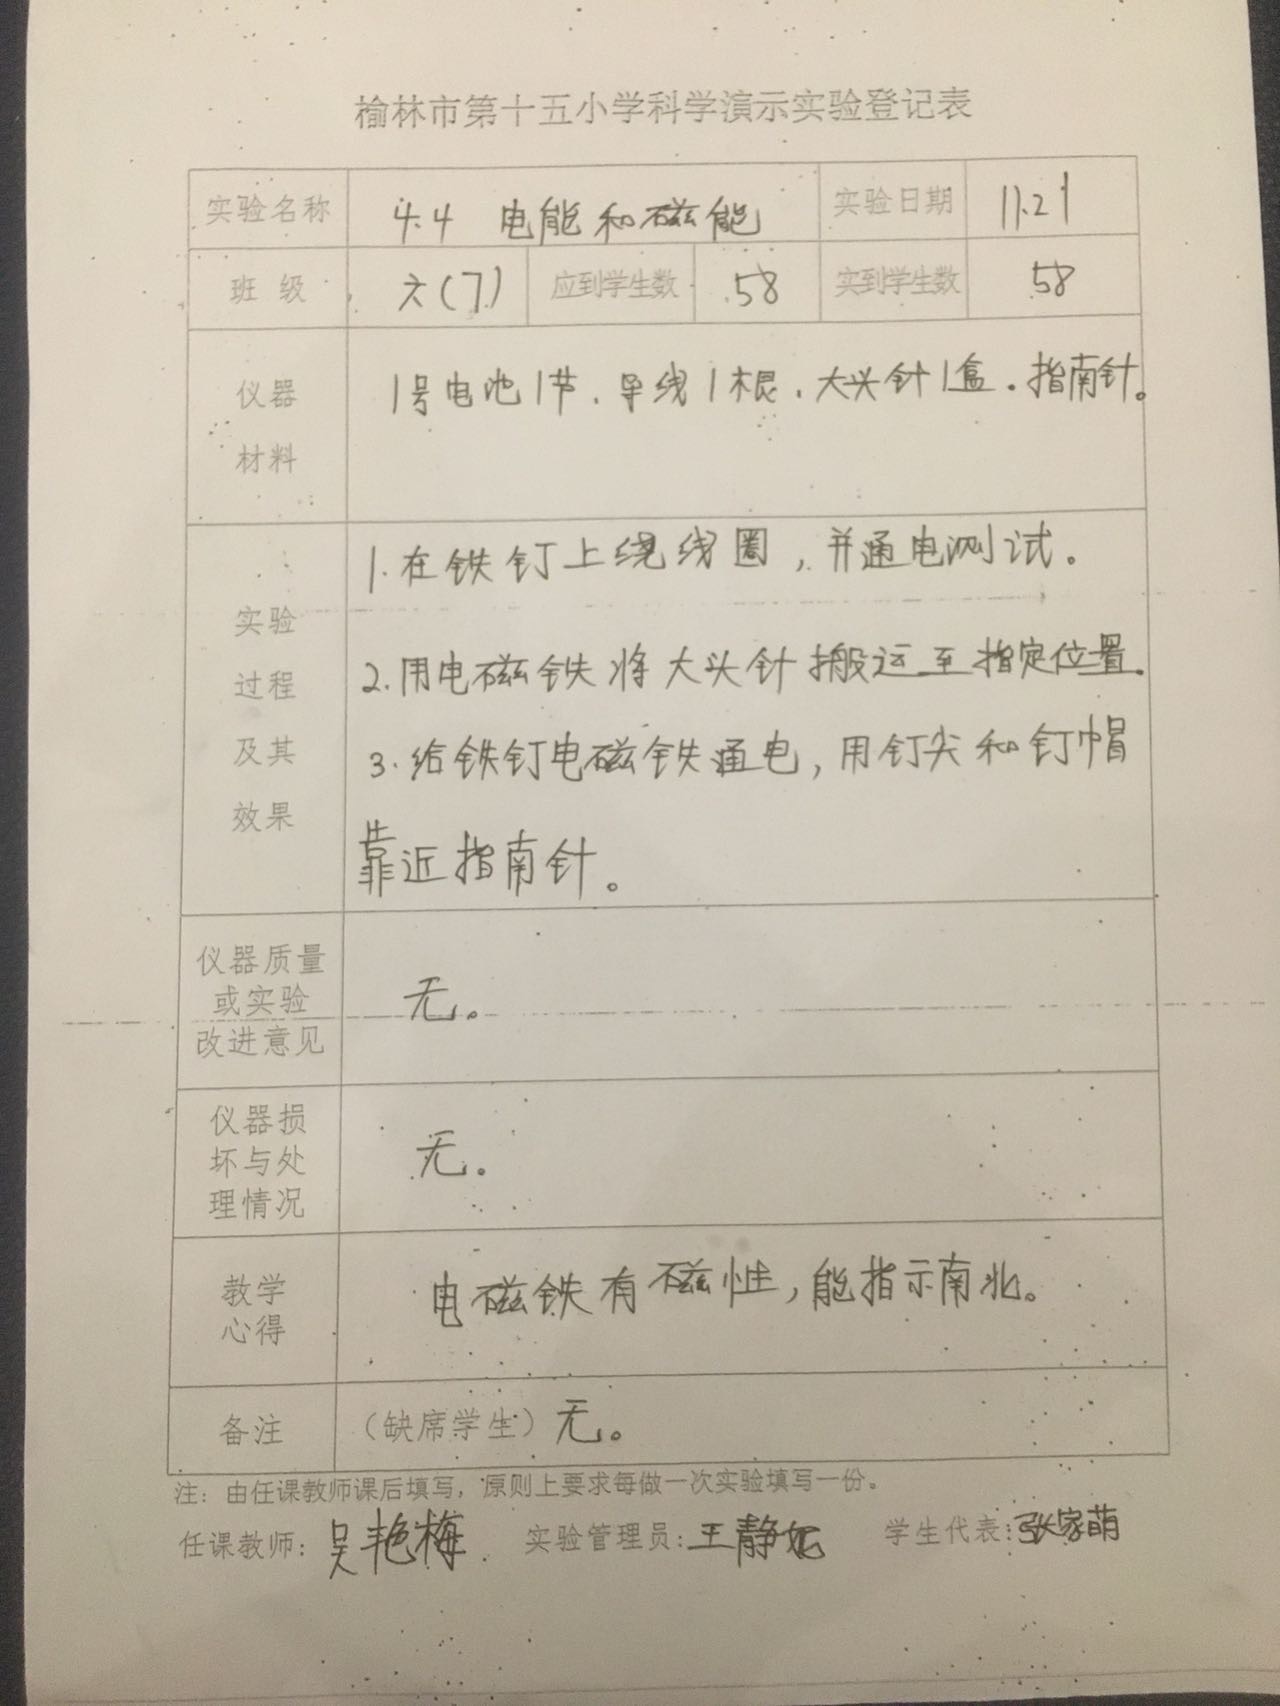 榆林市第十五小学科学演示实验登记表
实验名称 4.4 电能和磁能 实验日期 11.21
班级 六(7) 应到学生数 58 实到学生数 58
仪器
材料
1号电池1节、导线1根、大头针1盒、指南针。
实验
过程
及其
效果
1.在铁钉上绕线圈,并通电测试。
2.用电磁铁将大头针搬运至指定位置.
3.给铁钉电磁铁通电,用钉尖和钉帽
靠近指南针。
仪器质量
或实验
改进意见
无。
仪器损
坏与处
理情况
无。
教学
心得
电磁铁有磁性,能指示南北。
备注 (缺席学生)无。
注:由任课教师课后填写,原则上要求每做一次实验填写一份。
任课教师:吴艳梅 实验管理员:王静妮 学生代表:张家萌